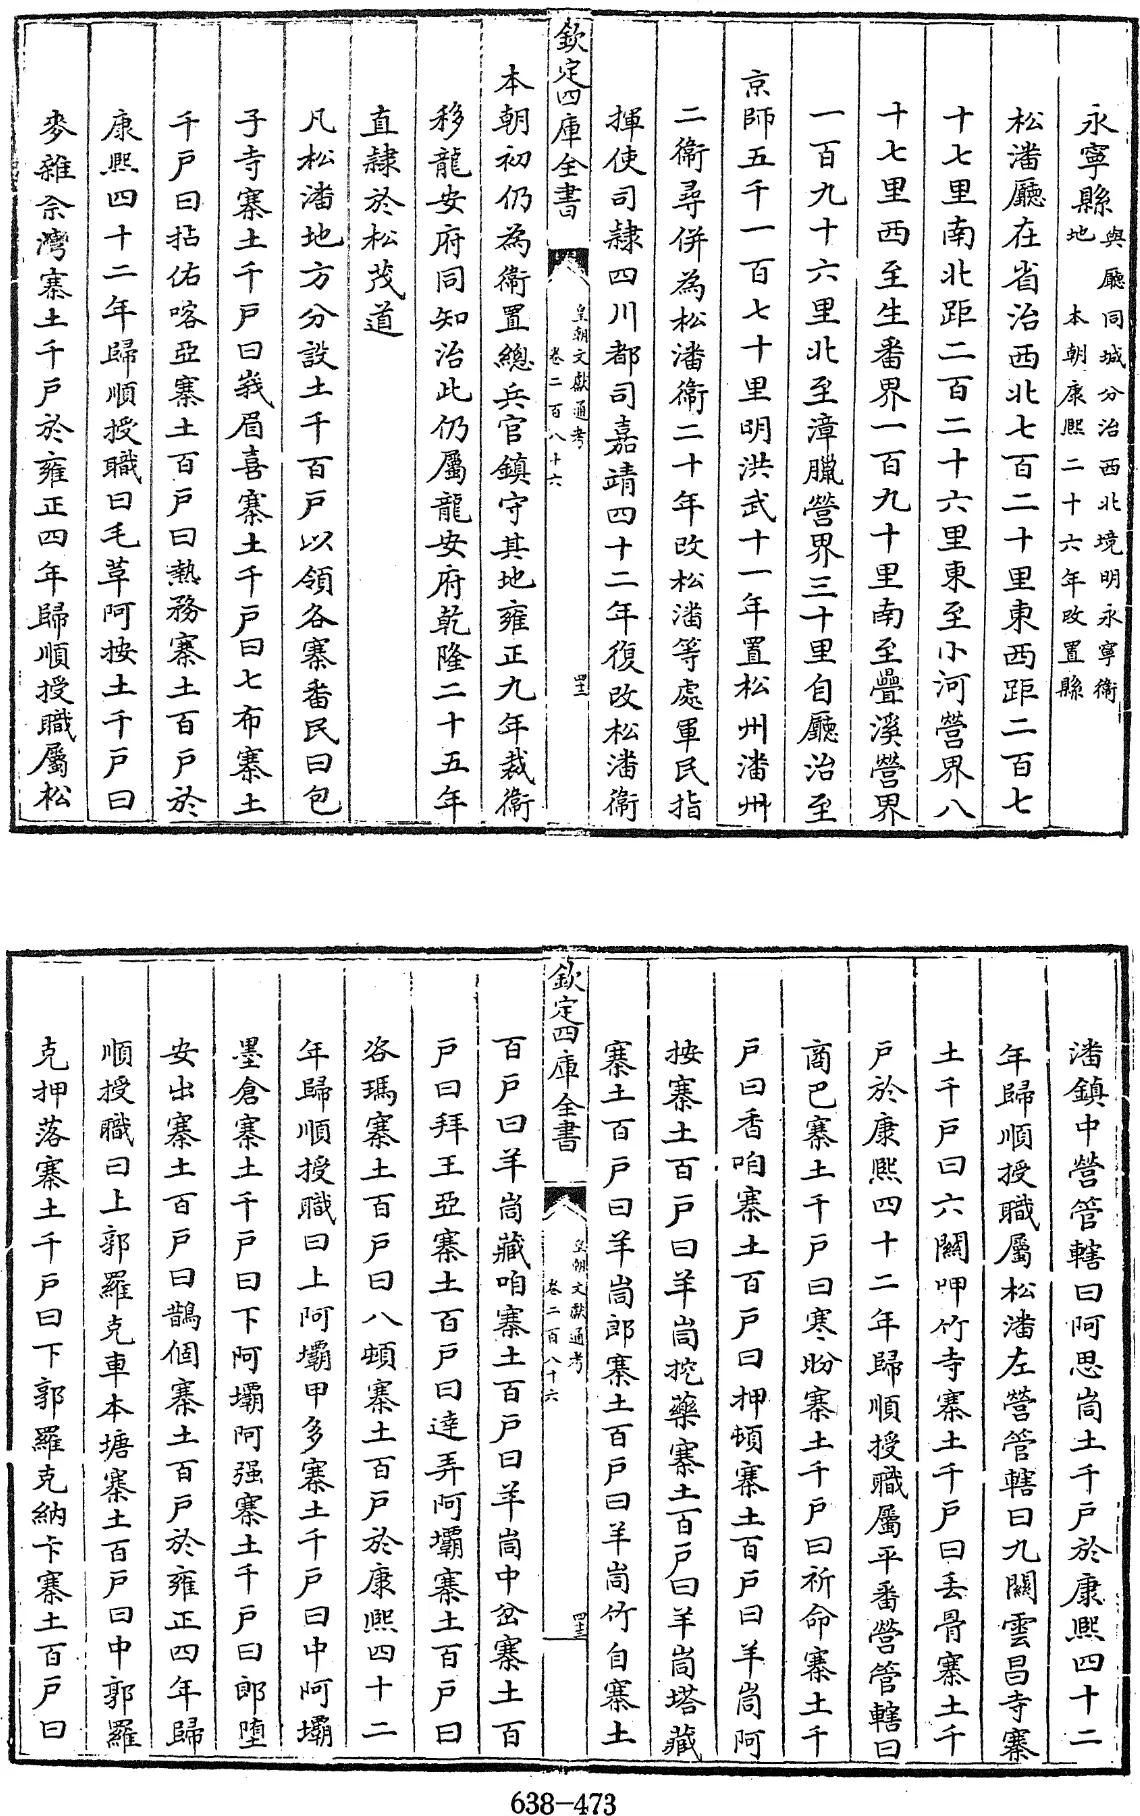 永寧縣與廳同城分治西北境明永寧衞地本朝康熙二十六年改置縣
松潘廳在省治西北七百二十里東西距二百七
十七里南北距二百二十六里東至小河營界八
十七里西至生番界一百九十里南至疊溪營界
一百九十六里北至漳臘營界三十里自廳治至
京師五千一百七十里明洪武十一年置松州潘州
二衞尋併為松潘衞二十年改松潘等處軍民指
揮使司隸四川都司嘉靖四十二年復改松潘衞
欽定四庫全書
皇朝文獻通考
卷二百八十六
本朝初仍為衞置總兵官鎮守其地雍正九年裁衞
移龍安府同知治此仍屬龍安府乾隆二十五年
直隸於松茂道
凡松潘地方分設土千百戶以領各寨番民曰包
子寺寨土千戶曰峩眉喜寨土千戶曰七布寨土
千戶曰拈佑喀亞寨土百戶曰熱務寨土百戶於
康熙四十二年歸順授職曰毛草阿按土千戶曰
麥雜佘灣寨土千戶於雍正四年歸順授職屬松
潘鎮中營管轄曰阿思峝土千戶於康熙四十二
年歸順授職屬松潘左營管轄曰九關雲昌寺寨
土千戶曰六關呷竹寺寨土千戶曰丟骨寨土千
戶於康熙四十二年歸順授職屬平番營管轄曰
商巴寨土千戶曰寒盼寨土千戶曰祈命寨土千
戶曰香咱寨土百戶曰押頓寨土百戶曰羊峝阿
按寨土百戶曰羊峝挖藥寨土百戶曰羊峝塔藏
寨土百戶曰羊峝郎寨土百戶曰羊峝竹自寨土
欽定四庫全書
皇朝文獻通考
卷二百八十六
四十三
百戶曰羊峝藏咱寨土百戶曰羊峝中岔寨土百
戶曰拜王亞寨土百戶曰達弄阿壩寨土百戶曰
咨瑪寨土百戶曰八頓寨土百戶於康熙四十二
年歸順授職曰上阿壩甲多寨土千戶曰中阿壩
墨倉寨土千戶曰下阿壩阿强寨土千戶曰郎墮
安出寨土百戶曰鵲個寨土百戶於雍正四年歸
順授職曰上郭羅克車本塘寨土百戶曰中郭羅
克押落寨土千戶曰下郭羅克納卡寨土百戶曰
638-473